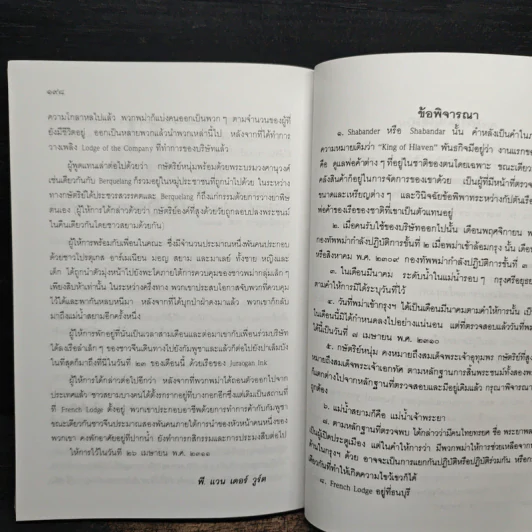 ๑๙๘
ความโกลาหลไปแล้ว พวกพม่าก็แบ่งคนออกเป็นพวก ๆ ตามจำนวนของผู้ที่
ยังมีชีวิตอยู่ ออกเป็นหลายพวกแล้วนำพวกเหล่านี้ไป หลังจากที่ได้ทำการ
วางเพลิง Lodge of the Company ที่ทำการของบริษัทแล้ว
ผู้พูดแทนเล่าต่อไปด้วยว่า กษัตริย์หนุ่มพร้อมด้วยพระบรมวงศานุวงศ์
เช่นเดียวกันกับ Berquelang ก็รวมอยู่ในหมู่ประชาชนที่ถูกนำไปด้วย ในระหว่าง
ทางกษัตริย์ได้ประชวรสวรรคตและ Berquelang ก็ถึงแก่กรรมด้วยการวางยาพิษ
ตนเอง (ผู้ให้การได้กล่าวด้วยว่า กษัตริย์องค์ที่สูงด้วยวัยถูกลอบปลงพระชนม์
ในคืนเดียวกันโดยชาวสยามด้วยกัน)
ผู้ให้การพร้อมกับเพื่อนในคณะ ซึ่งมีจำนวนประมาณหนึ่งพันคนประกอบ
ด้วยชาวโปรตุเกส อาร์เมเนียน มอญ สยาม และมาเลย์ ทั้งชาย หญิงและ
เด็ก ได้ถูกนำตัวมุ่งหน้าไปยังทะไวภายใต้การควบคุมของชาวพม่ากลุ่มเล็ก ๆ
เพียงสิบห้าเท่านั้น ในระหว่างครึ่งทาง พวกเขาประสบโอกาสจับพวกที่ควบคุม
ไว้ได้และพากันหลบหนีมา หลังจากที่ได้บุกป่าฝ่าดงมาแล้ว พวกเขาก็กลับ
มาถึงแม่น้ำสยามอีกครั้งหนึ่ง
ผู้ให้การพักอยู่ที่นั่นเป็นเวลาสามเดือนและต่อมาเขากับเพื่อนร่วมบริษัท
ได้ลงเรือสำเล็ก ๆ ของชาวจีนเดินทางไปยังกัมพูชาและแล้วก็ต่อไปยังปาเล็มบัง
ในที่สุดก็มาถึงที่นี่ในวันที่ ๒๓ เดือนนี้ ด้วยเรือของ Juragan Ink
ผู้ให้การได้กล่าวต่อไปอีกว่า หลังจากที่พวกพม่าได้ถอนตัวออกไปจาก
ประเทศแล้ว ชาวสยามบางคนได้ตั้งรกรากอยู่ที่บางกอกอีกซึ่งแต่เดิมเป็นสถานที่
ที่ French Lodge ตั้งอยู่ พวกเขาประกอบอาชีพด้วยการทำการค้ากับกัมพูชา
ขณะเดียวกันชาวจีนประมาณสองพันคนภายใต้การนำของหัวหน้าคนหนึ่งของ
พวกเขา คงพักอาศัยอยู่ที่ปากน้ำ ยังทำการกสิกรรมและการประมงสืบต่อไป
ให้การไว้ในวันที่ ๒๖ เมษายน พ.ศ. ๒๓๑๑
พี. แวน เดอร์ วูร์ต
ข้อพิจารณา
๑. Shabander หรือ Shabandar นั้น คำหลังเป็นคำใน
ความหมายเดิมว่า “King of Hlaven” พันธกิจมีอยู่ว่า งานแรกของ
คือ ดูแลพ่อค้าต่าง ๆ ที่อยู่ในชาติของตนโดยเฉพาะ ขณะเดียว
คลังสินค้าก็อยู่ในการจัดการของเขาด้วย เป็นผู้ที่มีหน้าที่ตรวจ
ขนาดและเหรียญต่าง ๆ และวินิจฉัยข้อพิพาทระหว่างกัปตันเรือ
พ่อค้าของเรือของชาติที่เขาเป็นตัวแทนอยู่
๒. เมื่อคนรับใช้ของบริษัทออกไปนั้น เดือนพฤศจิกายน
กองทัพพม่ากำลังปฏิบัติการขั้นที่ ๒ เมื่อพม่าเข้าล้อมกรุง นั้น
หรือสิงหาคม พ.ศ. ๒๓๐๙ กองทัพพม่ากำลังปฏิบัติการขั้นที่ ๓
๓. ในเดือนมีนาคม ระดับน้ำในแม่น้ำรอบ ๆ กรุงศรีอยุธยา
ตามคำให้การมิได้ระบุวันที่ไว้
๔. วันที่พม่าเข้ากรุงฯ ได้เป็นเดือนมีนาคมตามคำให้การนั้น
ในเดือนนี้มิได้กำหนดลงไปอย่างแน่นอน แต่ที่ตรวจสอบแล้ววันที่พม่า
ได้นี้เป็นวันที่ ๗ เมษายน พ.ศ. ๒๓๑๐
๕. กษัตริย์หนุ่ม คงหมายถึงสมเด็จพระเจ้าอุทุมพร กษัตริย์ที่สูง
หมายถึงสมเด็จพระเจ้าเอกทัศ ตามหลักฐานการสิ้นพระชนม์ทั้งสองพระ
ก็แตกต่างไปจากหลักฐานที่ตรวจสอบและมีอยู่เดิมแล้ว กรุณาพิจารณา
ถูกต้อง
๖. แม่น้ำสยามก็คือ แม่น้ำเจ้าพระยา
๗. ตามหลักฐานที่ตรวจพบ ได้กล่าวว่ามีคนไทยทรยศ ชื่อ พระยาพล
เป็นผู้เปิดประตูเมือง แต่ในคำให้การว่า มีพวกพม่าให้การช่วยเหลือจาก
ด้านในกรุงฯ ด้วย อาจจะเป็นการแยกกันปฏิบัติหรือปฏิบัติร่วมกัน หรือ
เดียวกันที่ทำให้เกิดความไขว้เขวก็ได้
๘. French Lodge อยู่ที่ธนบุรี